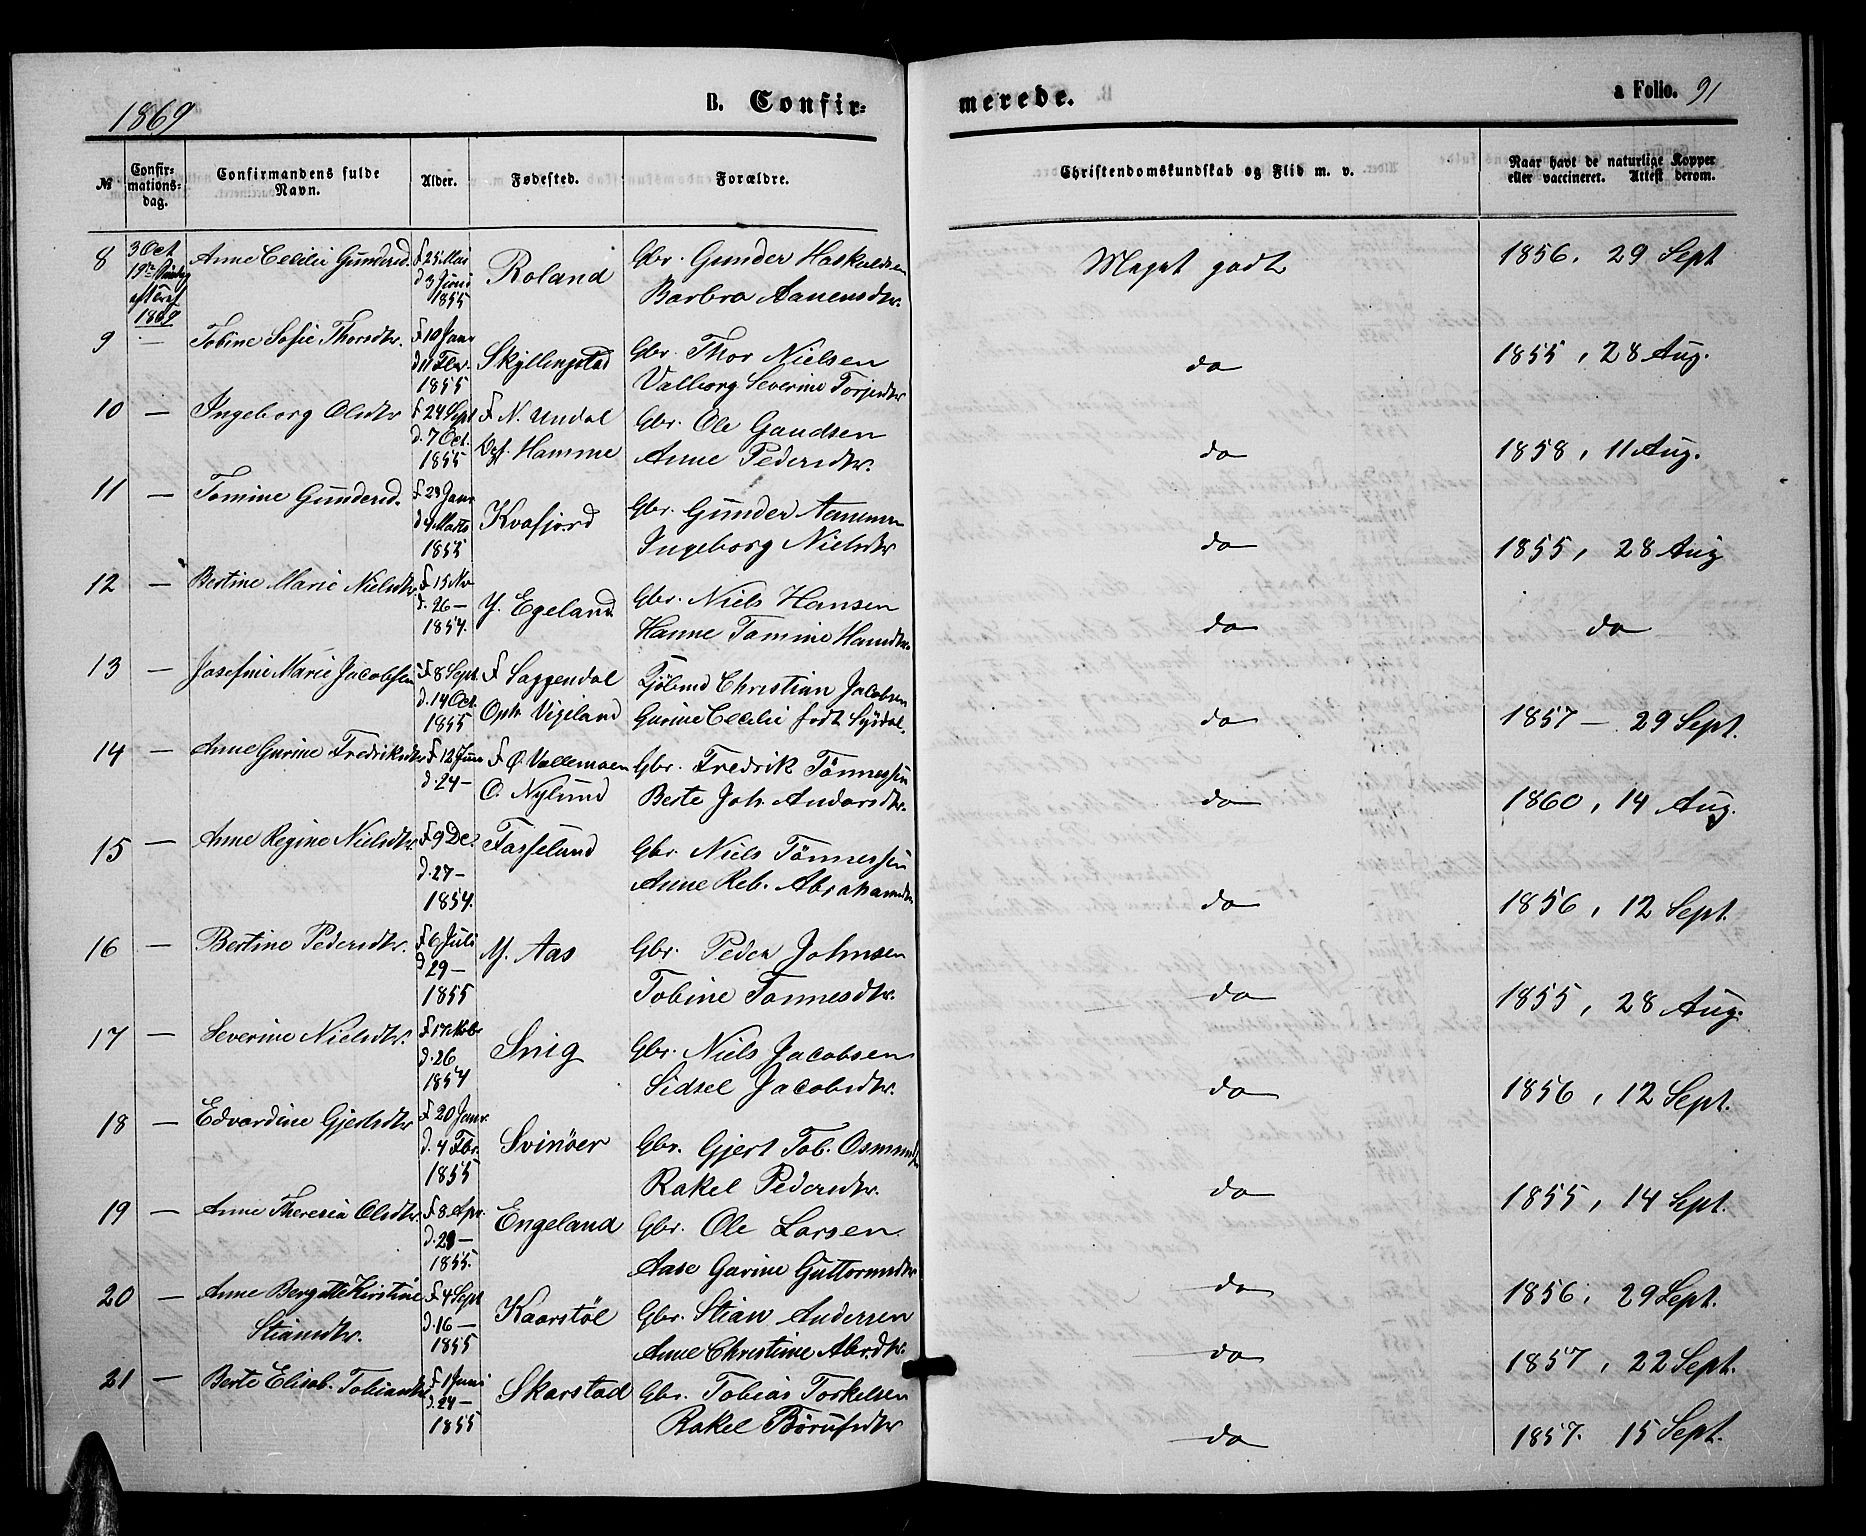 1869
B. Confir-
merede.
a Folio. 91
№
Confir-
mations-
dag.
Confirmandens fulde
Navn.
Alder.
Fødested.
Forældre.
Christendomskundskab og Flid m. v.
Naar havt de naturlige Kopper
eller vaccineret. Attest derom.
8 3 Oct Anne Cecilie Gundersd. f 25 Mai Roland Gbr. Gunder Haskeldsen Meget godt 1856, 29 Sept
19de d 3 Juni Barbro Aanensdtr.
1855
1869
9 — Tobine Sofie Thorsdtr. f 10 Janr Skyllingstad Gbr. Thor Nielsen do 1855, 28 Aug.
d 11 Febr. Valborg Severine Torjesdtr
1855
10 — Ingeborg Olsdtr f 24 Sept F N. Undal Gbr. Ole Gaudsen do 1858, 11 Aug.
d. 7 Oct. Opf. Hamme Anne Pedersdtr.
1855
11 — Tomine Gundersd. f 29 Janr Kvafjord Gbr. Gunder Aanensen do 1855, 28 Aug
d 4 Marts Ingeborg Nielsdtr
1855
12 — Bertine Marie Nielsdtr. f 15 Nov Y. Egeland Gbr. Niels Hansen do do
d. 26 — Hanne Tomine Hansdtr
1854.
13 — Josefine Marie Jacobsen f 8 Sept. F Saggendal Kjøbmd Christian Jacobsen do 1857 — 29 Sept.
d. 14 Oct. Opdr. Vigeland Gurine Cecilie født Syrdal.
1855
14 — Anne Gurine Fredriksdtr f 12 Juni F Ø. Vallemoen Gbr. Fredrik Tönnessen do 1860, 14 Aug.
d. 24 — O. Nylund Berte Joh. Andersdtr.
15 — Anne Regine Nielsdtr. f 9 Dec. Fasselund Gbr Niels Tönnessen do 1856, 12 Sept.
d. 27 — Anne Reb. Abrahamsdtr
1854.
16 — Bertine Pedersdtr. f 6 Juli Y. Aas Gbr. Peder Johnsen do 1855, 28 Aug.
d 29 — Tobine Tonnesdtr.
1855
17 — Severine Nielsdtr. f 17 Nobr Snig Gbr. Niels Jacobsen do 1856, 12 Sept.
d. 26 Sidsel Jacobsdtr.
1854
18 — Edvardine Gjertsdtr f 20 Janr. Svinöer Gbr. Gjert Tob. Osmundsen do 1855, 14 Sept.
d. 4 Fbr. Rakel Pedersdtr.
1855
19 — Anne Theresia Olsdtr. f 8 Apr. Engeland Gbr. Ole Larsen do 1856, 29 Sept.
d. 29 — Aase Gurine Guttormsdtr
1855.
20 — Anne Bergitte Kirstine f 4 Sept Kaarstöl Gbr. Stian Andersen do 1857, 22 Sept.
Stiansdtr. d. 16 — Anne Christine Abr.dtr.
1855
21 — Berte Elisab. Tobiasdtr f 1 Juni Skarstad Gbr. Tobias Torkelsen do 1857. 15 Sept.
d. 24 — Rakel Börufsdtr
1855